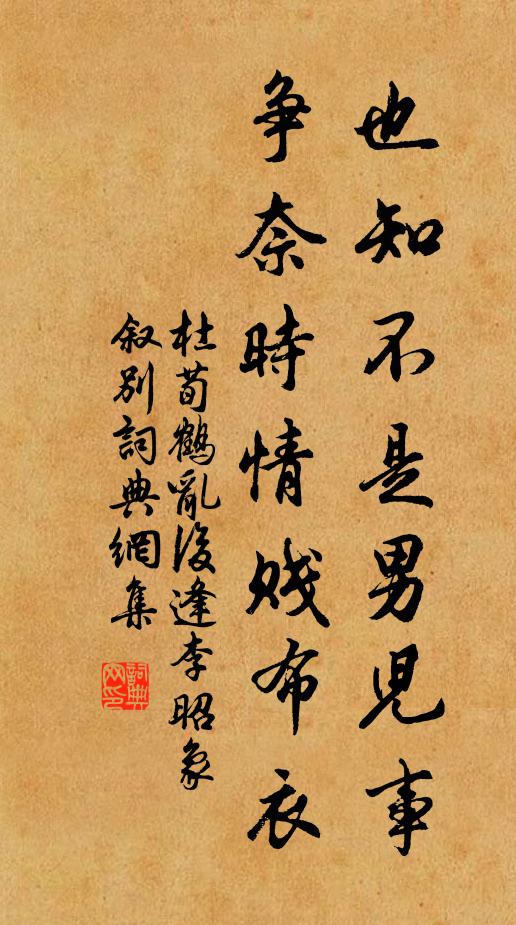 也知不是男児事
争奈時情賤布衣
杜荀鶴亂後逢李昭象
叙别詞典網集
詞典網印